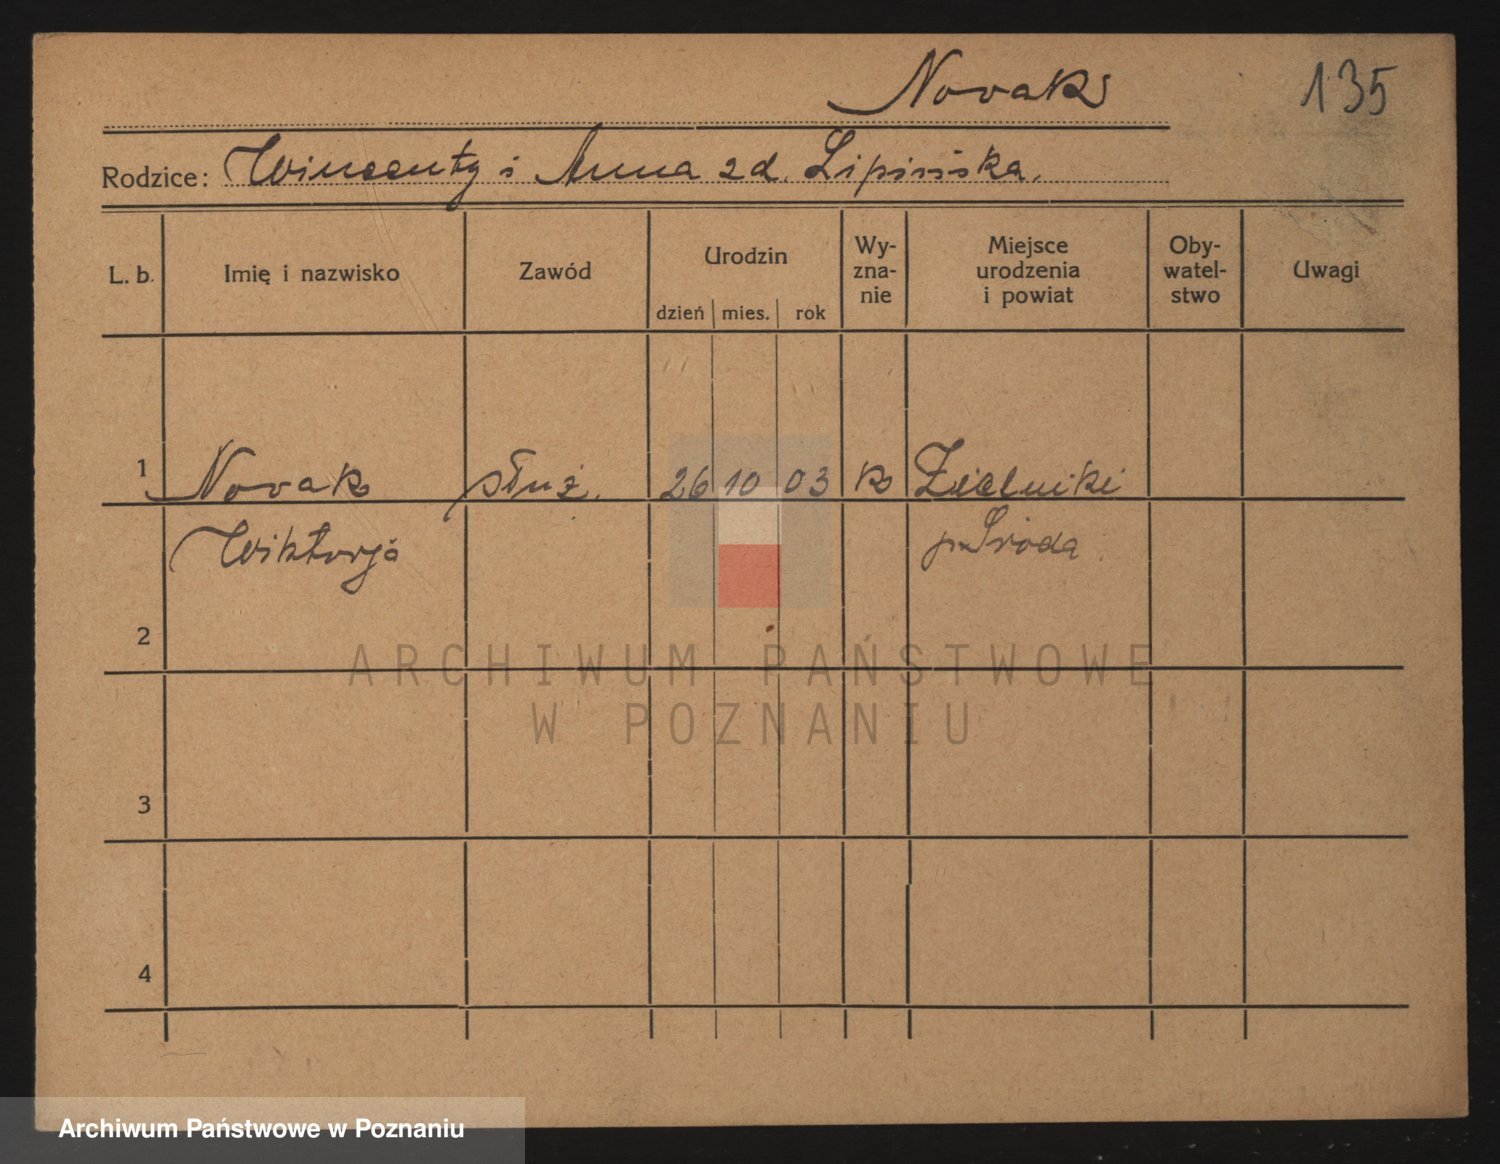 Novak
135
Rodzice: Wincenty i Anna zd. Lipińska.
L. b. Imię i nazwisko Zawód Urodzin dzień mies. rok Wy-zna-nie Miejsce urodzenia i powiat Oby-watel-stwo Uwagi
1 Novak służ. 26 10 03 k Zielniki
Wiktorja p. Środa
2
ARCHIWUM PAŃSTWOWE
W POZNANIU
3
4
Archiwum Państwowe w Poznaniu